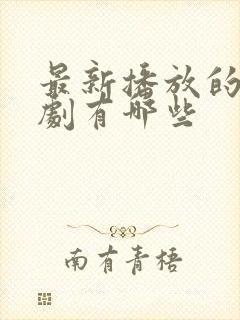 最新播放的
劇有哪些
南有青梧